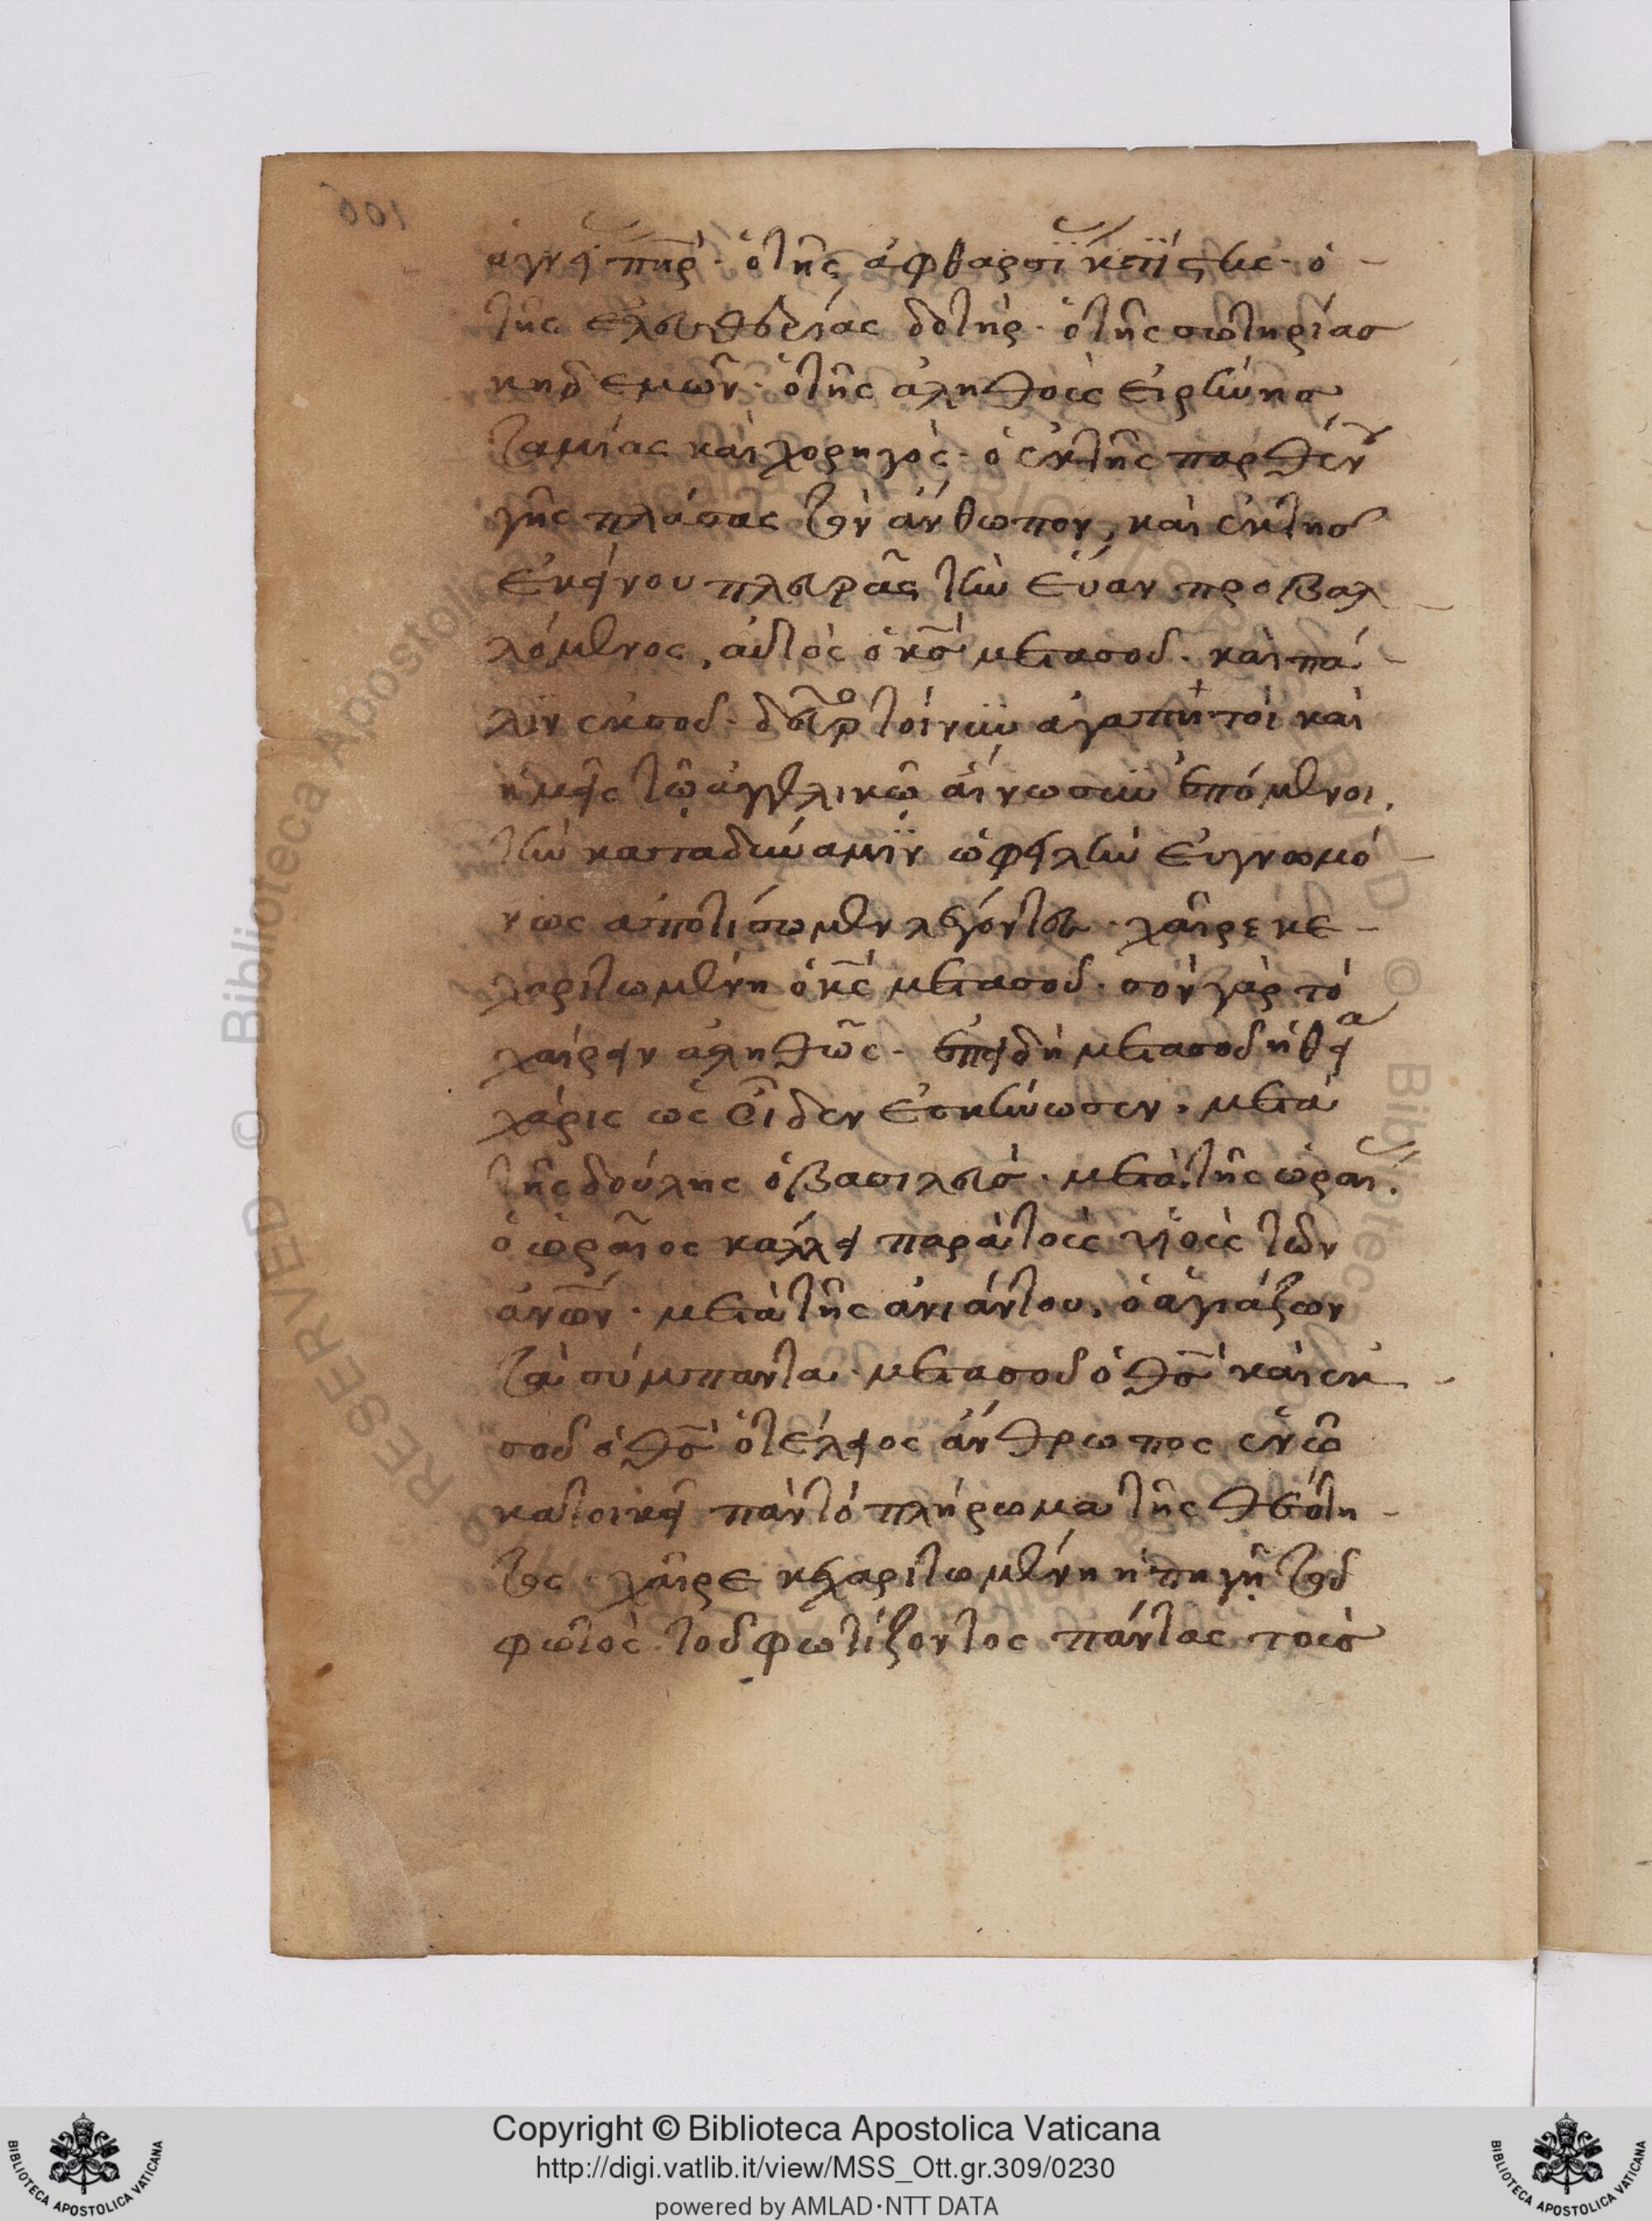 της ἐλευθερίας δοτήρ· ὁ τῆς σωτηρίας
κηδεμών· ὁ τῆς ἀληθοῖς εἰρήνης
ταμίας καὶ χορηγός· ὁ ἐκ τῆς παρθένου
γῆς πλάσας τὸν ἄνθωπον, καὶ ἐκ τῆς
ἐκείνου πλευρᾶς τὴν εὔαν προβαλ
λόμενος, αὐτὸς ὁ κς μετὰ σοῦ· καὶ πά
λιν ἐκ σοῦ· δεῦρο τοίνυν ἀγαπητοὶ καὶ
ἡμεῖς τῷ ἀγγελικῷ αἰνωσιν ἑπόμενοι,
τὴν κατὰ δύναμϊν ὠφειλὴν εὐγνωμό
νως ἀποτίσωμεν λέγοντες· χαῖρε κε
χαριτωμένη ὁ κς μετὰ σοῦ· σὸν γὰρ τὸ
χαίρειν ἀληθῶς· ἐπειδὴ μετὰ σοῦ ἡ θεία
χάρις ὡς εἶδεν ἐσκήνωσεν· μετὰ
τῆς δούλης ὁ βασιλεύς· μετὰ τῆς ὡραί
ὁ ὡραῖος κάλλει παρὰ τοὺς υἱοὺς τῶν
ἀνων· μετὰ τῆς ἀμιάντου, ὁ ἁγιάζων
τὰ σύμπαντα· μετὰ σοῦ ὁ θς καὶ ἐκ
σοῦ ὁ θς ὁ τέλειος ἄνθρωπος ἐν ᾧ
κατοικεῖ πᾶν τὸ πλήρωμα τῆς θεότη
τος· χαῖρε κεχαριτωμένη ἡ πηγὴ τοῦ
φωτὸς τοῦ φωτίζοντος πάντας τοὺς
Copyright © Biblioteca Apostolica Vaticana
http://digi.vatlib.it/view/MSS_Ott.gr.309/0230
powered by AMLAD·NTT DATA